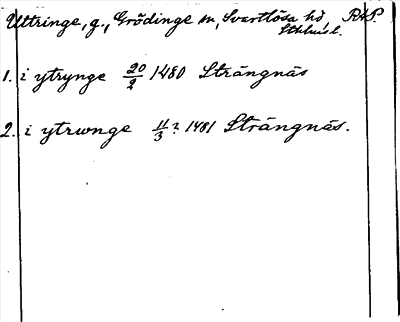 Uttringe, g., Grödinge sn, Svartlösa hd, RAP.
Sthlms l.
1. i ytrynge 20/2 1480 Strängnäs
2. i ytrunge 11/3? 1481 Strängnäs.